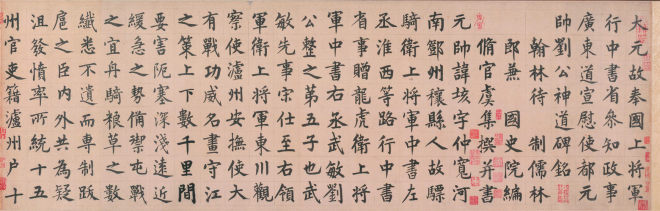 大元故奉國上將軍
行中書省參知政事
廣東道宣慰使都元
帥劉公神道碑銘
翰林待制儒林
郎兼國史院編
脩官虞集撰并書
元帥諱垓字仲寬河
南鄧州穰縣人故驃
騎衛上將軍中書左
丞淮西等路行中書
省事贈龍虎衛上將
軍中書右丞武敏劉
公整之第五子也武
敏先事宋仕至右領
軍衛上將軍東川觀
察使瀘州安撫使大
有戰功威名書守江
之策上下數千里間
要害阨塞深淺遠近
緩急之勢備禦屯戰
之宜舟騎糧草之數
纖悉不遺而專制跋
扈之臣內外共為疑
沮發憤率所統十五
州官吏籍瀘州戶十